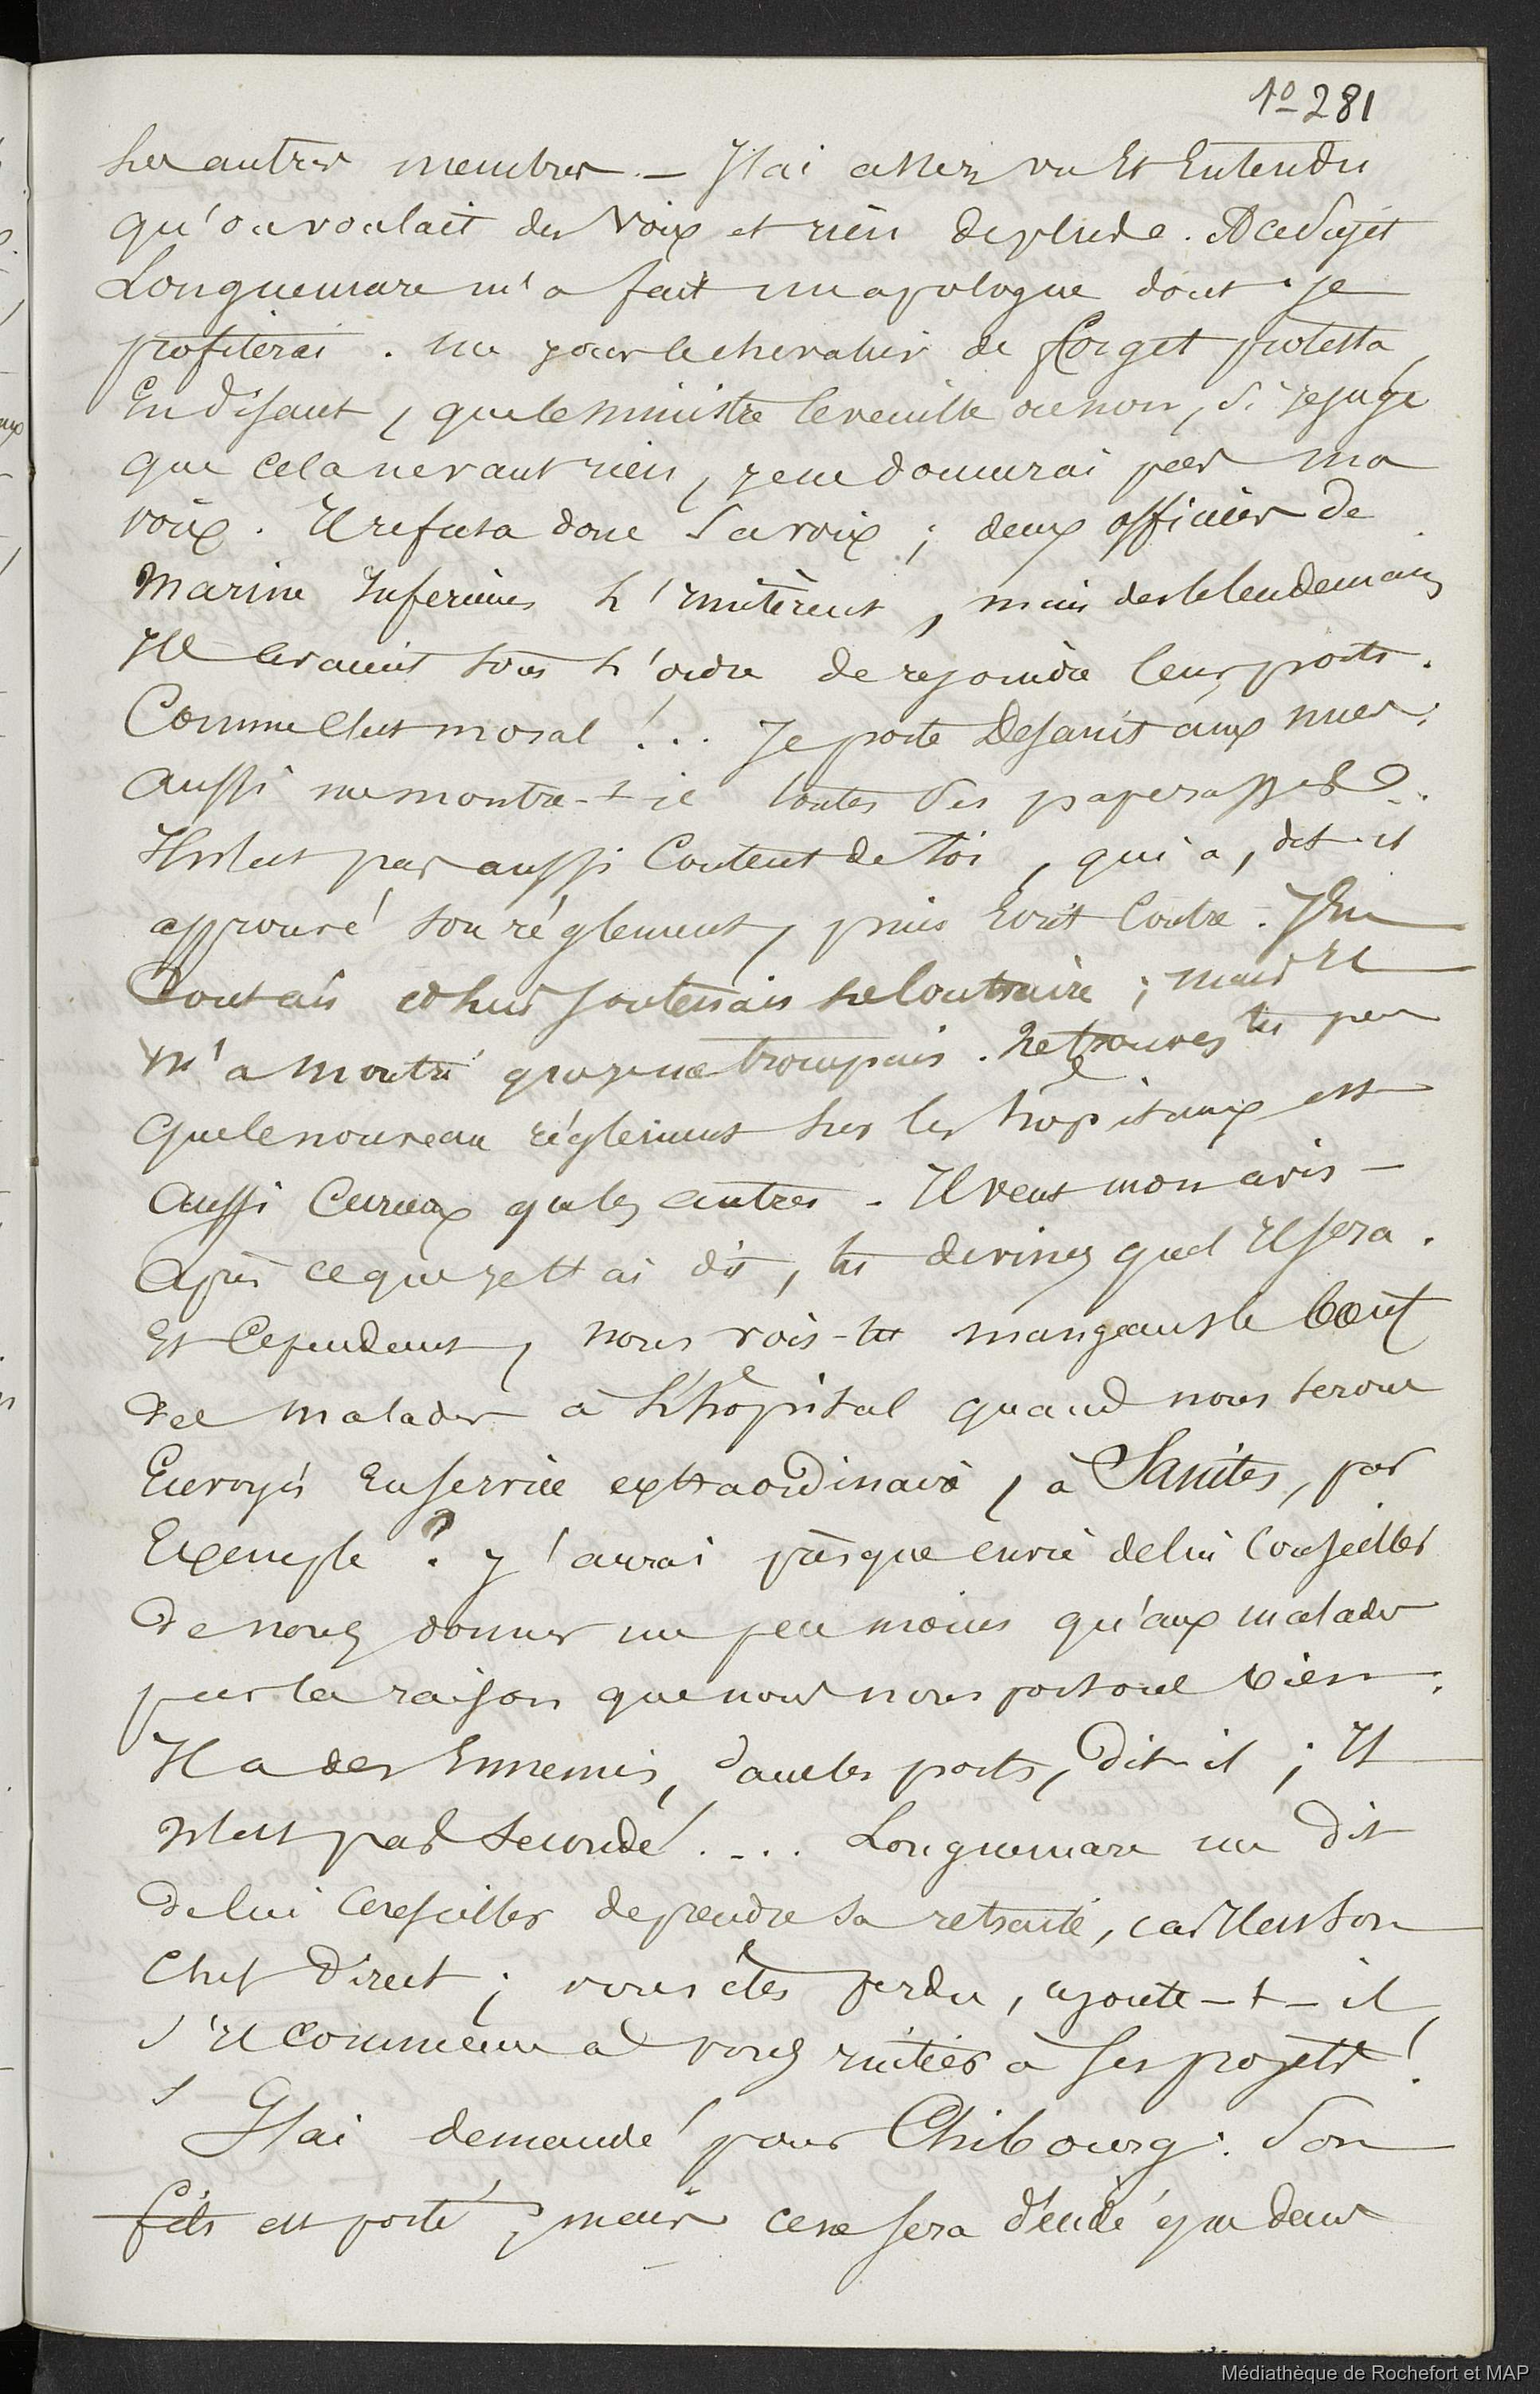 1º 281
les autres membres. — J'ai assez vu Et Entendu
qu'on voulait des voix et rien de plus. A ce Sujet
Longuemare m'a fait un apologue dont je
profiterai. un jour le chevalier de forget protesta,
En disant, que le ministre le veuille ou non, Si je juge
que cela ne vaut rien, je ne donnerai pas ma
voix. Il refusa donc Sa voix ; deux officiers de
Marine Inferieurs l'Imitèrent, mais dès le lendemain
Ils avaient tous l'ordre de rejoindre leurs ports.
Comme c'est moral !... Je porte Desanit aux nues ;
aussi me montre-t-il toutes Ses paperasses..
Il n'est pas aussi Content de toi, qui a, dit-il
approuvé son réglement, puis Ecrit Contre. J'En
Doutais et lui Soutenais le Contraire ; mais Il
m'a montré que je me trompais. Ne trouves tu pas
que le nouveau réglement sur les hôpitaux est
aussi Curieux que les autres. Il veut mon avis —
Après ce que je t'ai dit, tu devines quel Il Sera.
Et Cependant, nous vois-tu mangeant le bœuf
des malades à l'hôpital quand nous serons
Envoyés En Service extraordinaire, à Saintes, par
Exemple ? j'aurai presque envie de lui Conseiller
de nous donner un peu moins qu'aux malades
par la raison que nous nous portons bien.
Il a des Ennemis, dans les ports, Dit-il ; Il
n'est pas Secondé.... Longuemare me dit
De lui Conseiller de prendre sa retraite, car Il est son
Chef Direct ; vous êtes perdu, ajoute-t-il,
S'Il commence à vous initier à Ses projets !
J'ai demandé pour Chibourg. Son
fils est porté, mais ce ne Sera décidé que dans
Médiathèque de Rochefort et MAP